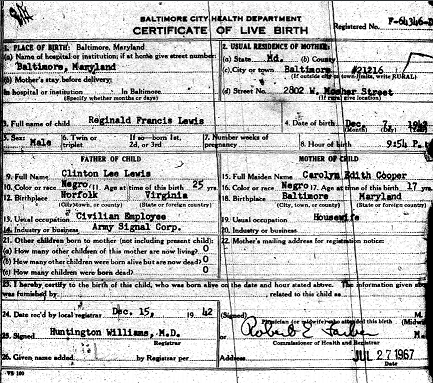 BALTIMORE CITY HEALTH DEPARTMENT
CERTIFICATE OF LIVE BIRTH
Registered No. F-64346-D
1. PLACE OF BIRTH: Baltimore, Maryland
(a) Name of hospital or institution; if at home give street number:
Baltimore, Maryland
(b) Mother's stay before delivery:
In hospital or institution In Baltimore
(Specify whether months or days)
2. USUAL RESIDENCE OF MOTHER:
(a) State Md. (b) County
(c) City or town Baltimore #21216
(If outside city or town limits, write RURAL)
(d) Street No. 2802 W. Mosher Street
(If rural give location)
3. Full name of child Reginald Francis Lewis
4. Date of birth Dec. 7, 1942
5. Sex: Male
6. Twin or triplet
If so—born 1st, 2d, or 3rd
7. Number weeks of pregnancy
8. Hour of birth 9:54 P.
FATHER OF CHILD
9. Full Name Clinton Lee Lewis
10. Color or race Negro 11. Age at time of this birth 25 yrs.
12. Birthplace Norfolk Virginia
(City, town, or county) (State or foreign country)
13. Usual occupation Civilian Employee
14. Industry or business Army Signal Corp.
MOTHER OF CHILD
15. Full Maiden Name Carolyn Edith Cooper
16. Color or race Negro 17. Age at time of this birth 17 yrs.
18. Birthplace Baltimore Maryland
(City, town, or county) (State or foreign country)
19. Usual occupation Housewife
20. Industry or business
21. Other children born to mother (not including present child):
(a) How many other children of this mother are now living? 0
(b) How many other children were born alive but are now dead? 0
(c) How many children were born dead? 0
22. Mother's mailing address for registration notice:
23. I hereby certify to the birth of this child, who was born alive on the date and hour stated above. The information given
was furnished by , related to this child as
24. Date rec'd by local registrar Dec. 15, 1942
25. Signed Huntington Williams, M.D.
Registrar
26. Given name added by Registrar per
(Signed) M.
Physician (or midwife) who attended this birth (Midwi
or Robert E. Farber M.
Commissioner of Health and Registrar
Address JUL 27 1967
VS 100